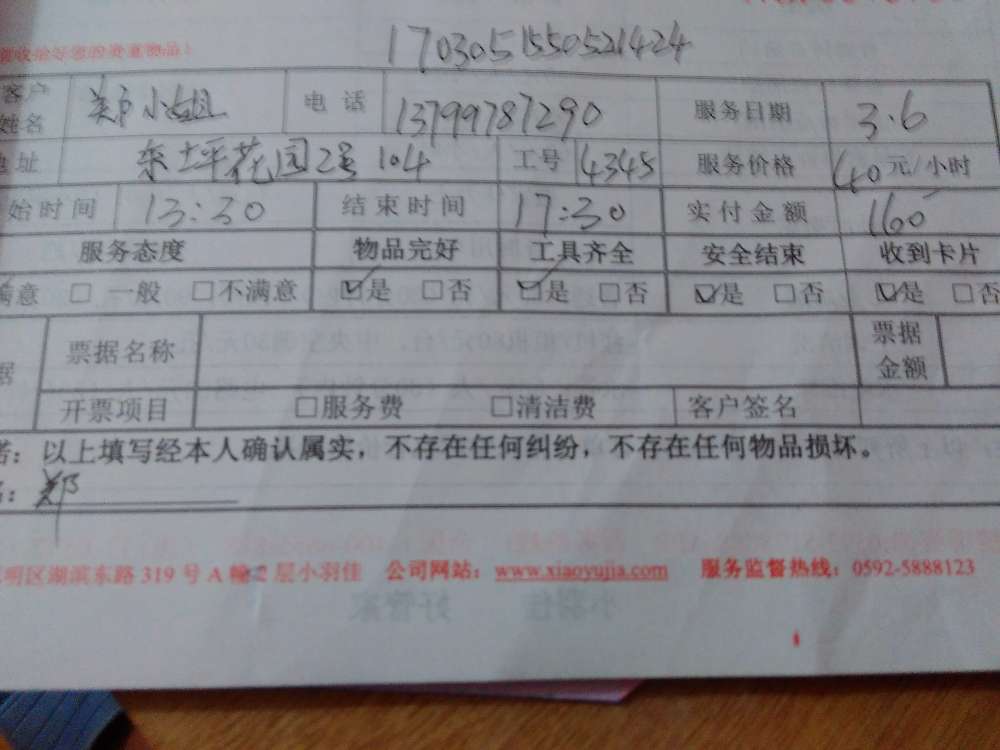 收拾好您的贵重物品!
1703051550521424
客户姓名 郑小姐 电话 13799787290 服务日期 3.6
地址 东坪花园2号104 工号 4345 服务价格 40元/小时
始时间 13:30 结束时间 17:30 实付金额 160
服务态度 物品完好 工具齐全 安全结束 收到卡片
满意 □ 一般 □不满意 ☑是 □否 ☑是 □否 ☑是 □否 ☑是 □否
据 票据名称 票据金额
开票项目 □服务费 □清洁费 客户签名
诺：以上填写经本人确认属实，不存在任何纠纷，不存在任何物品损坏。
名：郑
明区湖滨东路 319 号 A 幢 2 层小羽佳 公司网站：www.xiaoyujia.com 服务监督热线：0592-5888123